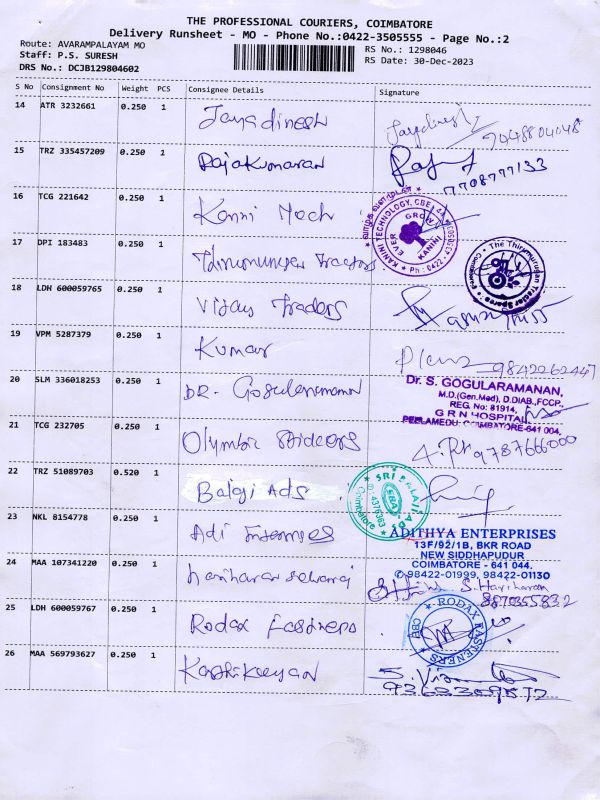 THE PROFESSIONAL COURIERS, COIMBATORE
Delivery Runsheet - MO - Phone No.:0422-3505555 - Page No.:2
Route: AVARAMPALAYAM MO
RS No.: 1298046
Staff: P.S. SURESH
RS Date: 30-Dec-2023
DRS No.: DCJB129804602
S No Consignment No Weight PCS Consignee Details Signature
14 ATR 3232661 0.250 1 Jayadinesh
9048804048
15 TRZ 335457209 0.250 1 Rajakumaran
7708777133
16 TCG 221642 0.250 1 Kanni Tech
KANINI TECHNOLOGY, CBE
EVER GROW KANINI
17 DPI 183483 0.250 1 Thirumurugan Tractors
The Thirumurugan Tractor Spares
Coimbatore
18 LDH 600059765 0.250 1 Vijay Traders
19 VPM 5287379 0.250 1 Kumar
9842262447
20 SLM 336018253 0.250 1 DR. Gogularamanan
Dr. S. GOGULARAMANAN,
M.D.(Gen.Med), D.DIAB.,FCCP.,
REG. No: 81914,
G R N HOSPITAL
PEELAMEDU, COIMBATORE-641 004.
21 TCG 232705 0.250 1 Olymbic
9787666000
22 TRZ 51089703 0.520 1 Balaji Ads
SRI BALAJI ADS
Coimbatore
SBA
23 NKL 8154778 0.250 1 Adi
ADITHYA ENTERPRISES
13F/92/1B, BKR ROAD
NEW SIDDHAPUDUR
COIMBATORE - 641 044.
98422-01999, 98422-01130
24 MAA 107341220 0.250 1 hariharaselvaraj
S. Hariharan
8870355832
25 LDH 600059767 0.250 1 Rodax Fastners
RODAX FASTENERS
CBE
26 MAA 569793627 0.250 1 Karthikeyan